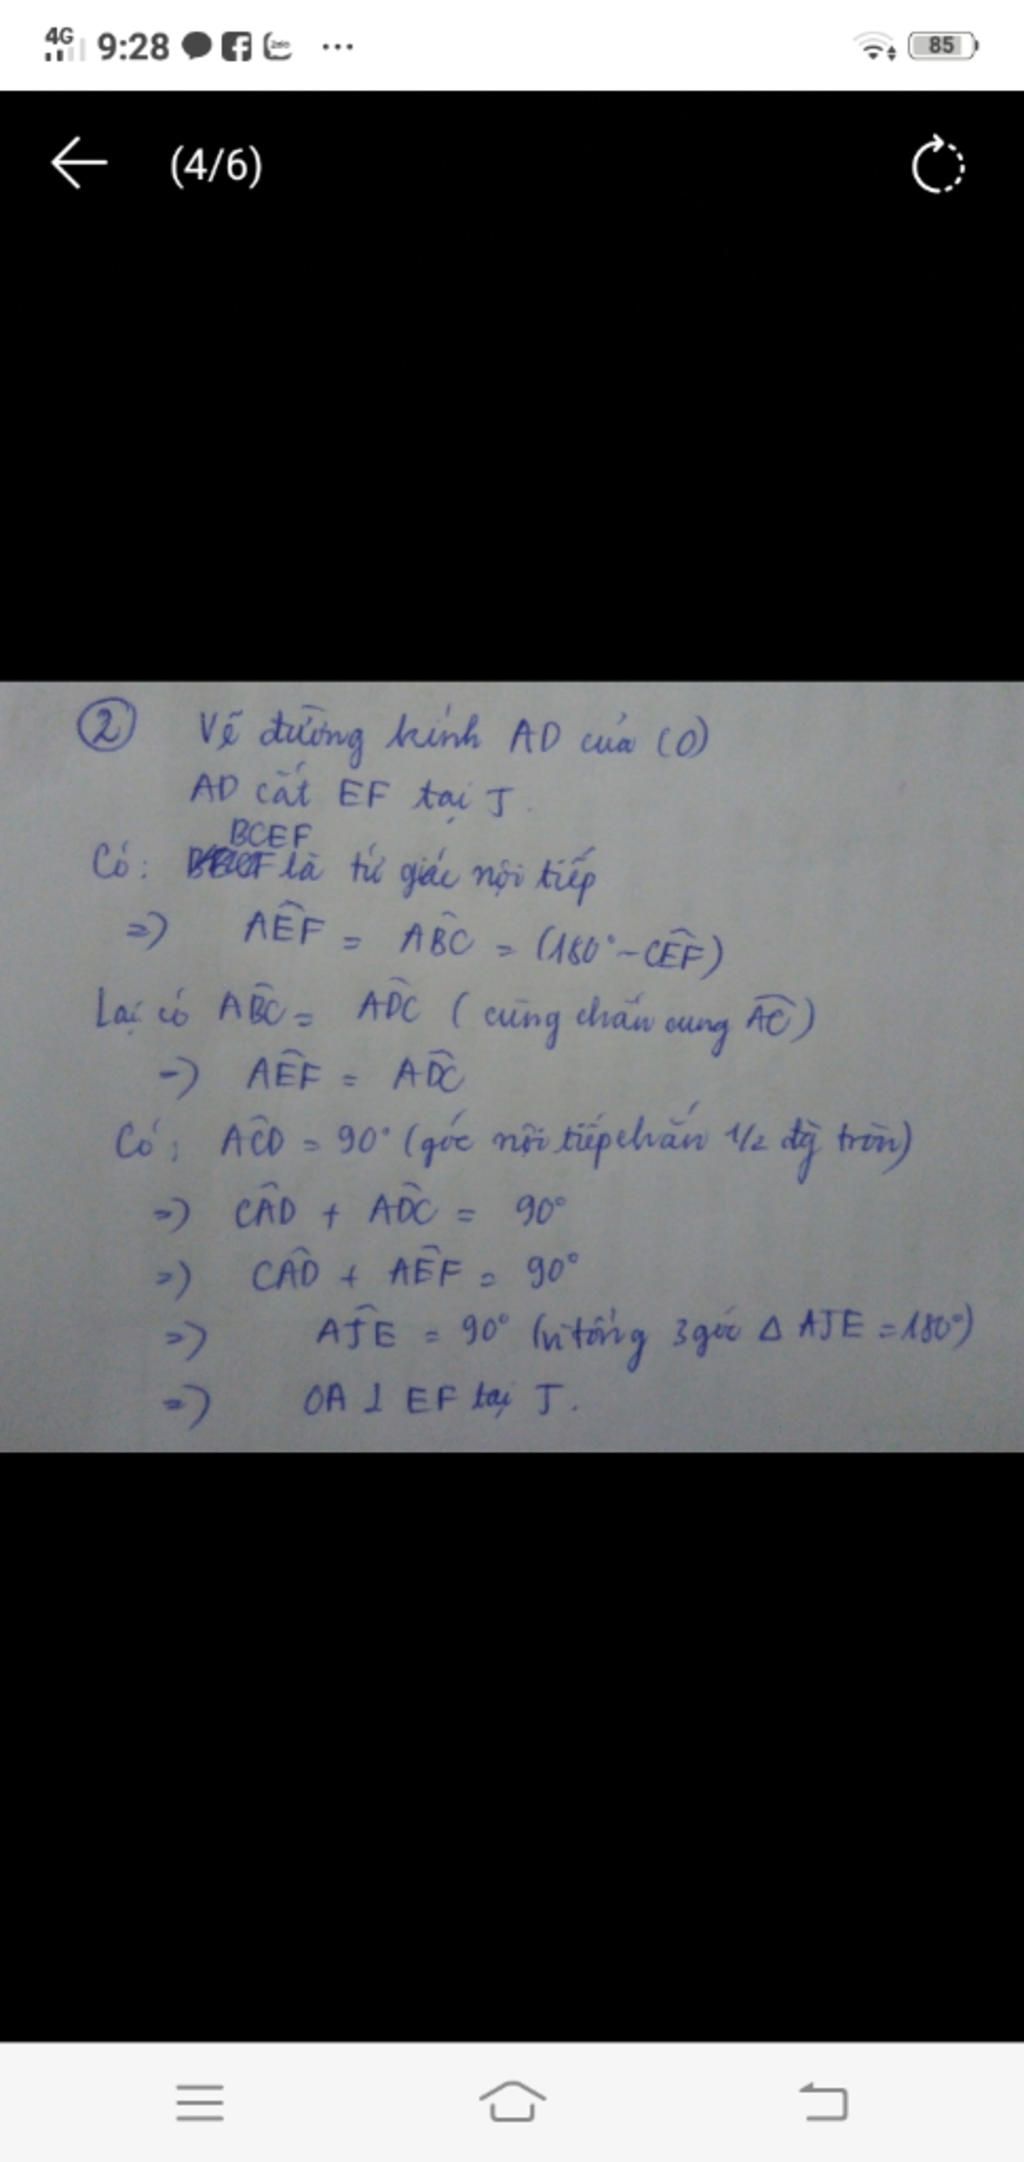 4G 9:28 ... 85
(4/6)
② Vẽ đường kính AD của (O)
AD cắt EF tại J.
BCEF
Có: là tứ giác nội tiếp
=> AÊF = AB̂C = (180° - CÊF)
Lại có AB̂C = AD̂C (cùng chắn cung AC)
=> AÊF = AD̂C
Có: AĈD = 90° (góc nội tiếp chắn 1/2 đg tròn)
=> CÂD + AD̂C = 90°
=> CÂD + AÊF = 90°
=> AĴE = 90° (vì tổng 3 góc Δ AJE = 180°)
=> OA ⊥ EF tại J.